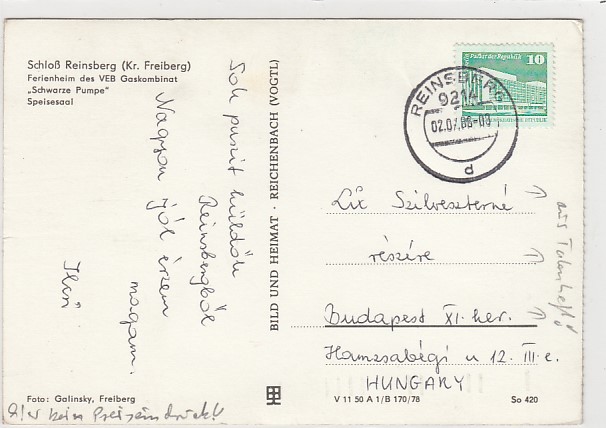 Schloß Reinsberg (Kr. Freiberg)
Ferienheim des VEB Gaskombinat
„Schwarze Pumpe“
Speisesaal
Sok puszit küldök
Reinsbergből
Nagyon jól érzem
magam.
BILD UND HEIMAT · REICHENBACH (VOGTL)
Palast der Republik 10
REINSBERG
9214
d
Lix Szilveszterné
részére
Budapest XI. ker.
Hamzsabégi u 12. III. e.
HUNGARY
aus
Foto: Galinsky, Freiberg
V 11 50 A 1/B 170/78
So 420
kein Preiseindruck!